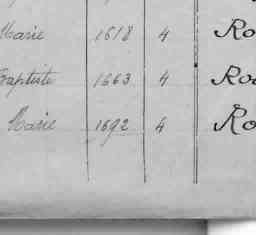 Marie 1618 4 Ro
Baptiste 1663 4 Ro
Marie 1692 4 Ro